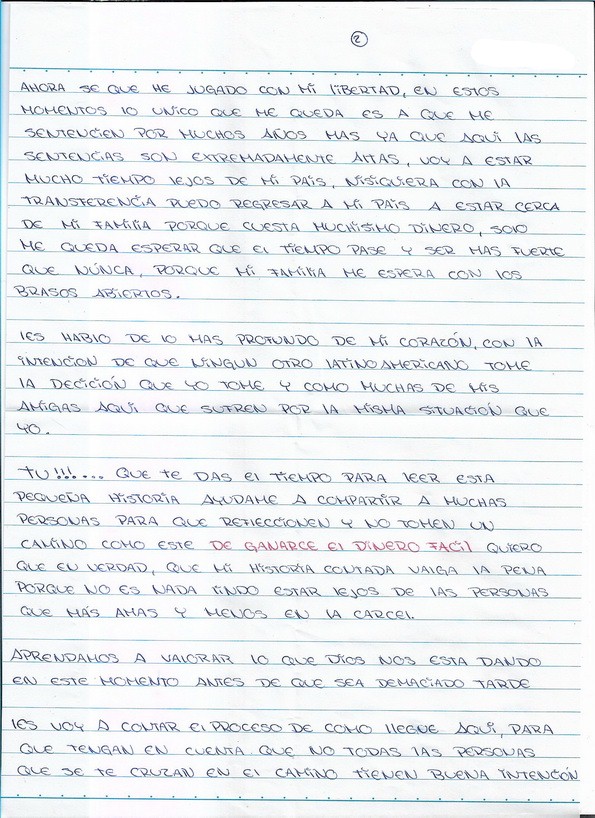 2
AHORA SE QUE HE JUGADO CON Mi liBERTAD, EN ESTOS
MOMENTOS lO UNICO QUE ME QUEDA ES A QUE ME
SENTENCIEN POR MUCHOS AÑOS MAS YA QUE AQUi lAS
SENTENCIAS SON EXTREMADAMENTE AlTAS, VOY A ESTAR
MUCHO TiEMPO lEJOS DE Mi PAIS, NiSiQUiERA CON lA
TRANSFERENCiA PUEDO REGRESAR A Mi PAIS A ESTAR CERCA
DE Mi FAMiliA PORQUE CUESTA MUCHISIMO DINERO, SOlO
ME QUEDA ESPERAR QUE El TiEMPO PASE Y SER MAS FUERTE
QUE NÚNCA, PORQUE Mi FAMiliA ME ESPERA CON lOS
BRASOS ABIERTOS.
lES HABlO DE lO MAS PROFUNDO DE Mi CORAZÓN, CON lA
iNTENCION DE QUE NiNGUN OTRO lATiNOAMERiCANO TOME
lA DECICIÓN QUE YO TOME Y COMO MUCHAS DE MiS
AMiGAS AQUi QUE SUFREN POR lA MiSMA SiTUACIÓN QUE
YO.
TU!!!.... QUE TE DAS El TiEMPO PARA lEER ESTA
PEQUEÑA HISTORIA AYUDAME A COMPARTiR A MUCHAS
PERSONAS PARA QUE REFlECCIONEN Y NO TOMEN UN
CAMiNO COMO ESTE DE GANARCE El DiNERO FACil QUIERO
QUE EN VERDAD, QUE Mi HiSTORiA CONTADA VAlGA lA PENA
PORQUE NO ES NADA liNDO ESTAR lEJOS DE lAS PERSONAS
QUE MÁS AMAS Y MENOS EN lA CARCEl.
APRENDAMOS A VAlORAR lO QUE DiOS NOS ESTA DANDO
EN ESTE MOMENTO ANTES DE QUE SEA DEMACiADO TARDE
lES VOY A CONTAR El PROCESO DE COMO llEGUE AQUi, PARA
QUE TENGAN EN CUENTA QUE NO TODAS lAS PERSONAS
QUE SE TE CRUZAN EN El CAMiNO TiENEN BUENA iNTENCIÓN